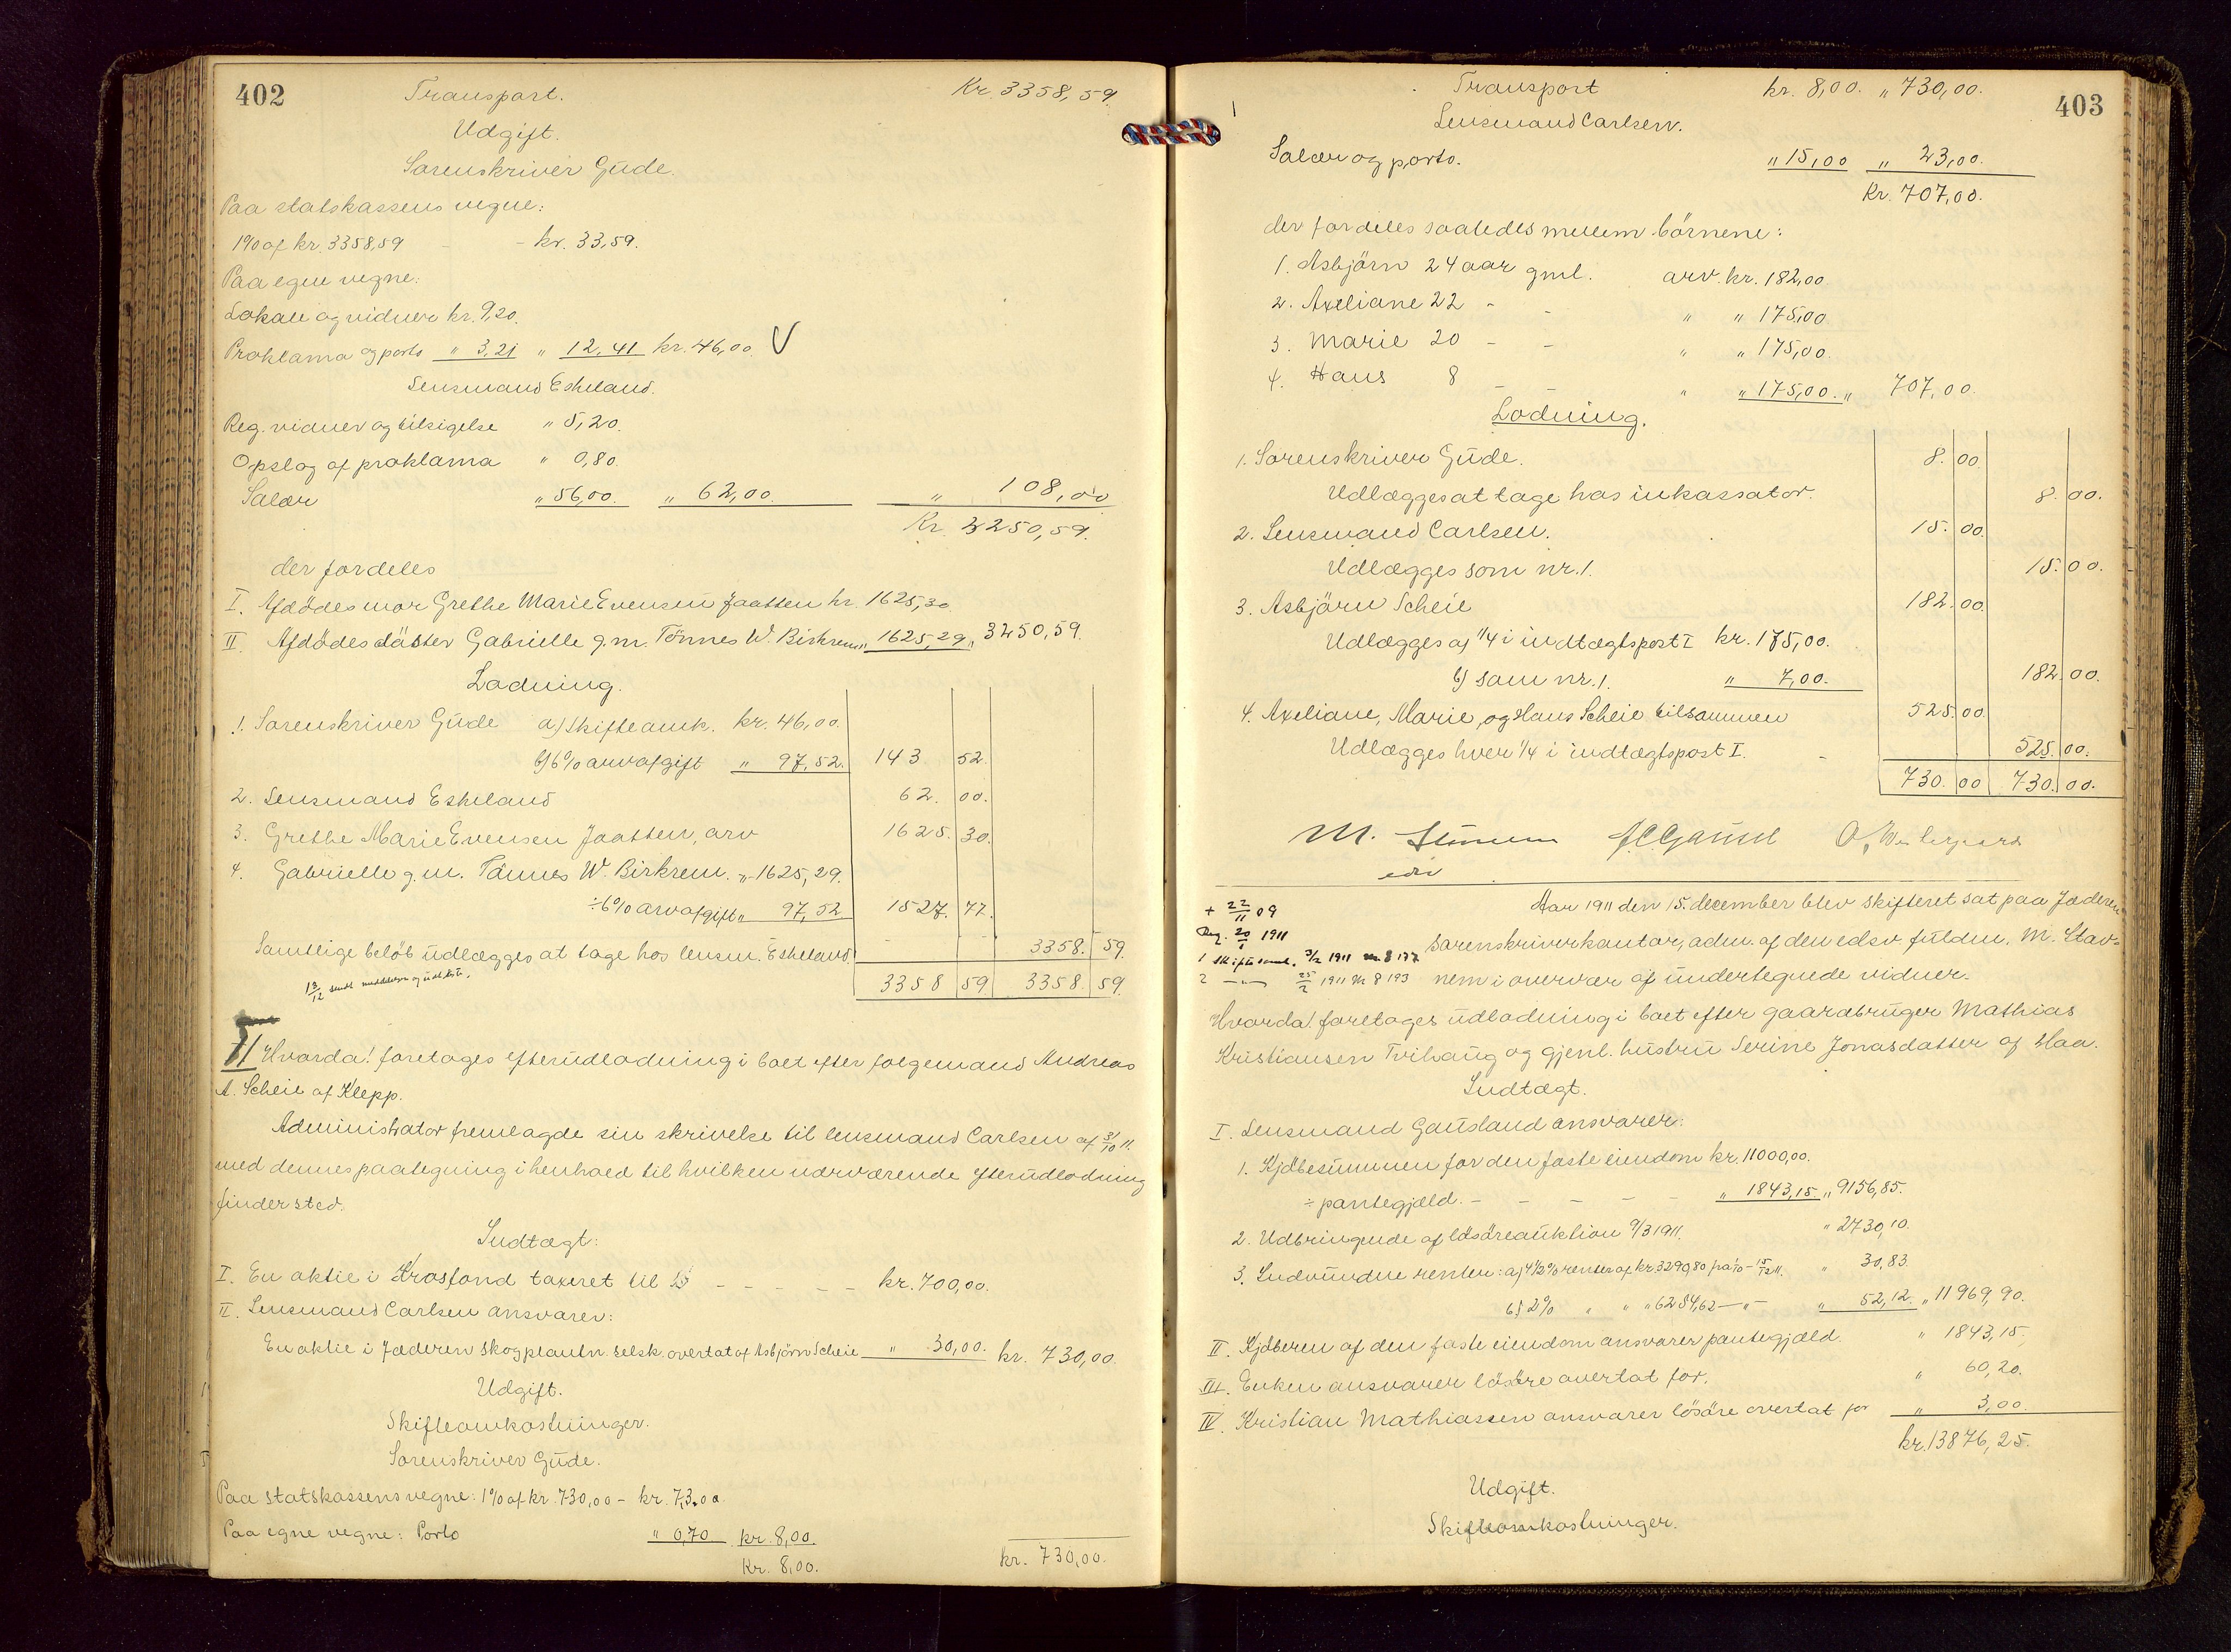 402
Transport. Kr. 3358,59.
Udgift.
Sorenskriver Gude.
Paa statskassens vegne:
1% af kr. 3358,59 - - kr. 33,59.
Paa egne vegne:
Lokale og vidner kr. 9,20.
Proklama og porto " 3,21 " 12,41 kr. 46,00. V
Lensmand Eskeland.
Reg. vidner og tilsigelse " 5,20.
Opslag af proklama " 0,80.
Salær " 56,00. " 62,00. " 108,00
Kr. 3250,59.
der fordeles
I. Afdödes mor Grethe Marie Evensen Jaatten kr. 1625,30
II Afdödes däbter Gabrielle g.m. Tönnes W. Birkrem " 1625,29 " 3250,59.
Lodning.
1. Sorenskriver Gude a) skifteomk. kr. 46,00.
b) 6% arvafgift " 97,52. 143 52.
2. Lensmand Eskeland 62. 00.
3. Grethe Marie Evensen Jaatten, arv 1625. 30.
4. Gabrielle g.m. Tönnes W. Birkrem. " 1625,29.
÷ 6% arvafgift " 97,52 1527. 77.
Samtlige beløb udlægges at tage hos lensm. Eskeland. 3358. 59.
13/12 sendt meddelelse og udskr.
3358 59 3358. 59.
II Hvorda! foretages efterudlodning i boet efter følgemand Andreas
A. Scheie af Klepp.
Administrator fremlagde sin skrivelse til lensmand Carlsen af 31/10 11.
med dennes paategning i henhold til hvilken nærværende efterudlodning
finder sted.
Indtægt:
I. En aktie i Krosfond taxeret til - - - - - kr. 700,00.
II. Lensmand Carlsen ansvarer:
En aktie i Jæderen skogplantn. selsk. overtat af Asbjörn Scheie " 30,00. kr. 730,00.
Udgift.
Skifteomkostninger.
Sorenskriver Gude.
Paa statskassens vegne: 1% af kr. 730,00 - kr. 7,3.00
Paa egne vegne: Porto " 0,70 kr. 8,00.
Kr. 8,00. kr. 730,00.
403
Transport kr. 8,00. " 730,00.
Lensmand Carlsen.
Salær og porto. " 15,00 " 23,00.
Kr. 707,00.
der fordeles saaledes mellem börnene:
1. Asbjörn 24 aar gml. arv. kr. 182,00
2. Axeliane 22 - - " " 175,00
3. Marie 20 - - " " 175,00.
4. Hans 8 - - " " 175,00. " 707,00.
Lodning.
1. Sorenskriver Gude. 8. 00.
Udlægges at tage hos inkassator. 8. 00.
2. Lensmand Carlsen. 15. 00.
Udlægges som nr. 1. 15. 00.
3. Asbjörn Scheie 182. 00.
Udlægges a) 1/4 i indtægtspost I kr. 175,00.
b) som nr. 1. " 7,00. 182. 00.
4. Axeliane, Marie, og Hans Scheie tilsammen 525. 00.
Udlægges hver 1/4 i indtægtspost I. - 525. 00.
730. 00 730. 00.
M. Stavnem
edsv
Aar 1911 den 15. december blev skifteret sat paa Jæderen
sorenskriverkontor, adm. af den edsv. fuldm. M. Stav-
nem i overvær af undertegnede vidner.
+ 22/11 09
Reg. 20/1 1911
1 skiftesaml. 3/2 1911 nr. 8 177
2 — " — 25/2 1911 nr 8 193
Hvorda! foretages udlodning i boet efter gaardbruger Mathias
Kristiansen Tvihaug og gjenl. hustru Serine Jonasdatter af Haa.
Indtægt.
I. Lensmand Gausland ansvarer:
1. Kjöbesummen for den faste eiendom kr. 11000,00.
÷ pantegjæld. - - - - - " 1843,15 " 9156,85.
2. Udbringende af lösöreauktion 9/3 1911. " 2730,10.
3. Indvundne renter: a) 4 1/2% renter af kr. 3290,80 fra 1/10 - 15/12 11. " 30,83
b) 2% " " " 6284,62 — " — " 52,12. " 11969,90.
II. Kjöberen af den faste eiendom ansvarer pantegjæld. " 1843,15.
III. Enken ansvarer lösöre overtat for. " 60,20.
IV. Kristian Mathiassen ansvarer lösöre overtat for " 3,00.
kr. 13876,25.
Udgift.
Skifteomkostninger.